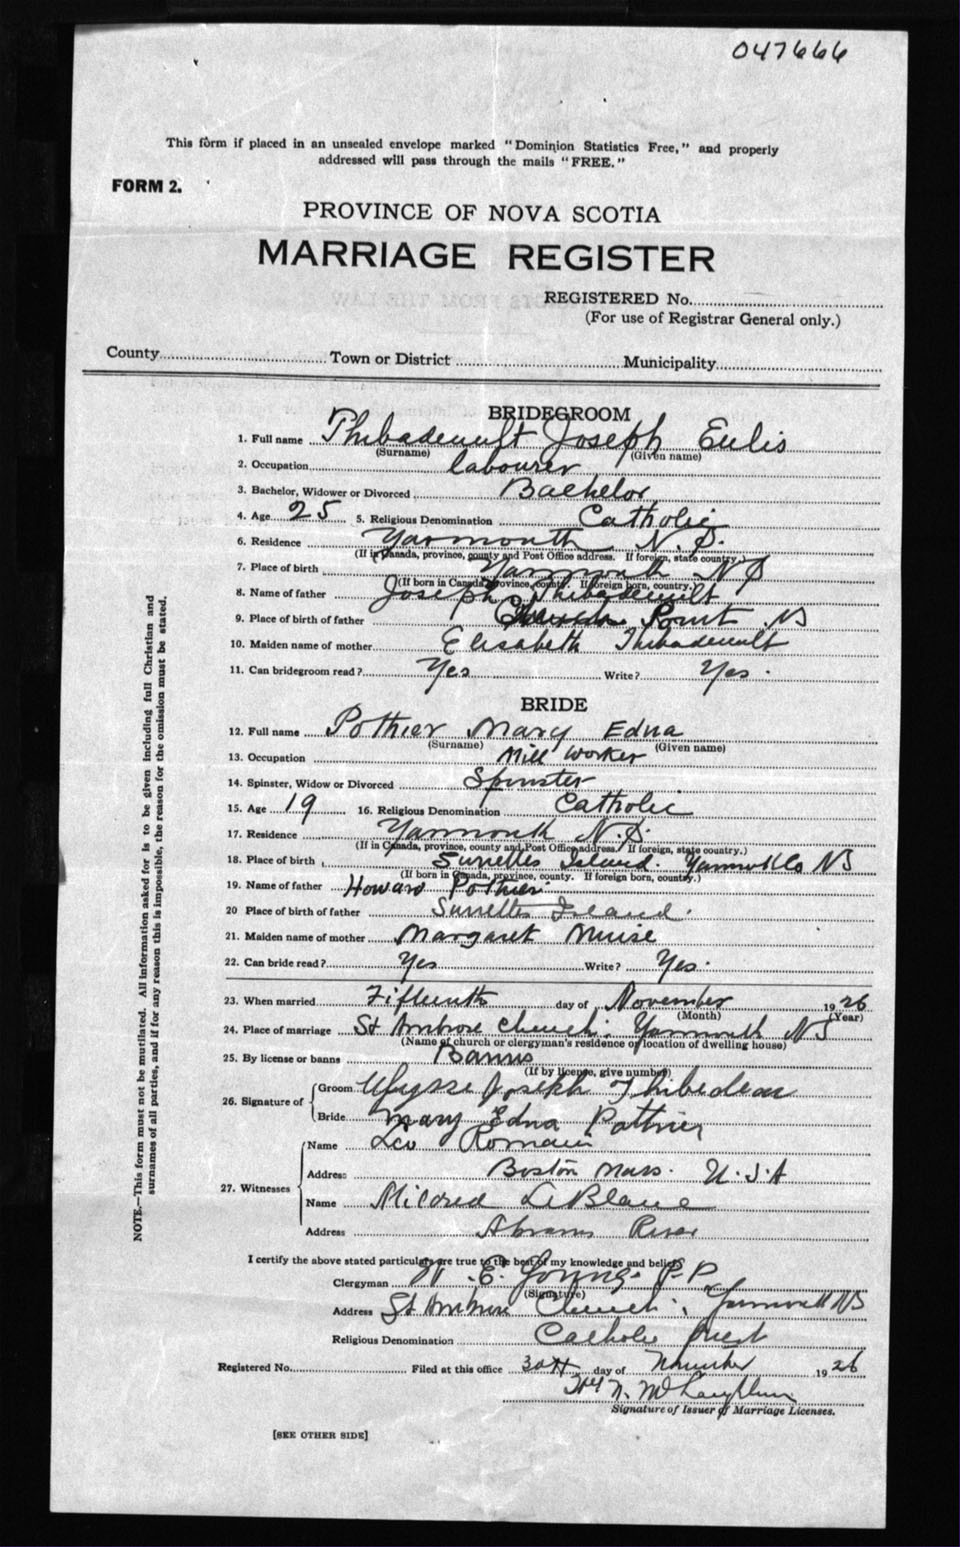 047666
This form if placed in an unsealed envelope marked "Dominion Statistics Free," and properly
addressed will pass through the mails "FREE."
FORM 2.
PROVINCE OF NOVA SCOTIA
MARRIAGE REGISTER
REGISTERED No.
(For use of Registrar General only.)
County Town or District Municipality
BRIDEGROOM
1. Full name Thibadeault Joseph Eulis
(Surname) (Given name)
2. Occupation labourer
3. Bachelor, Widower or Divorced Bachelor
4. Age 25 5. Religious Denomination Catholic
6. Residence Yarmouth N.S.
(If in Canada, province, county and Post Office address. If foreign, state country.)
7. Place of birth Yarmouth NS
(If born in Canada, province, county. If foreign born, country.)
8. Name of father Joseph Thibadeault
9. Place of birth of father Point NS
10. Maiden name of mother Elisabeth Thibadeault
11. Can bridegroom read? Yes Write? Yes.
BRIDE
12. Full name Pothier Mary Edna
(Surname) (Given name)
13. Occupation Mill Worker
14. Spinster, Widow or Divorced Spinster
15. Age 19 16. Religious Denomination Catholic
17. Residence Yarmouth N.S.
(If in Canada, province, county and Post Office address. If foreign, state country.)
18. Place of birth Surrettes Island. Yarmouth Co NS
(If born in Canada, province, county. If foreign born, country.)
19. Name of father Howard Pothier.
20 Place of birth of father Surrettes Island.
21. Maiden name of mother Margaret Muise
22. Can bride read? Yes Write? Yes.
23. When married Fifteenth day of November 1926
(Month) (Year)
24. Place of marriage St Ambrose Church. Yarmouth NS
(Name of church or clergyman's residence or location of dwelling house)
25. By license or banns Banns
(If by license, give number)
26. Signature of
Groom Ulysse Joseph Thibedeau
Bride Mary Edna Pothier
27. Witnesses
Name Leo Romain
Address Boston Mass. U.S.A
Name Mildred LeBlanc
Address Abrams River
I certify the above stated particulars are true to the best of my knowledge and belief.
Clergyman W. E. Young. P.P.
(Signature)
Address St Ambrose Church. Yarmouth NS
Religious Denomination Catholic Priest
Registered No. Filed at this office 30th day of November 1926
N. McLaughlin
Signature of Issuer of Marriage Licenses.
[SEE OTHER SIDE]
NOTE.—This form must not be mutilated. All information asked for is to be given including full Christian and
surnames of all parties, and if for any reason this is impossible, the reason for the omission must be stated.